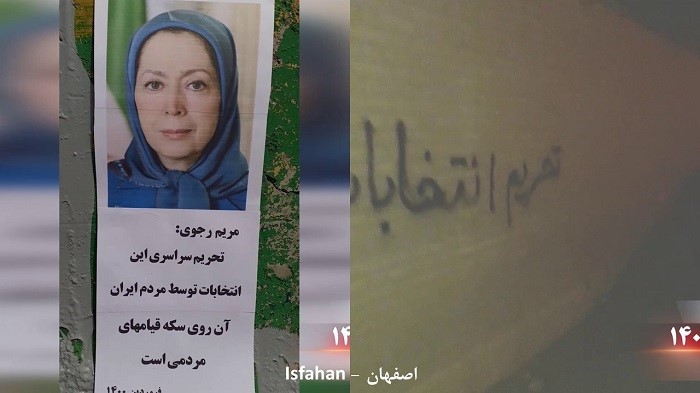 مریم رجوی:
تحریم سراسری این
انتخابات توسط مردم ایران
آن روی سکه قیامهای
مردمی است
فروردین ۱۴۰۰
تحریم انتخابات
۱۴۰
۱۴۰
Isfahan – اصفهان